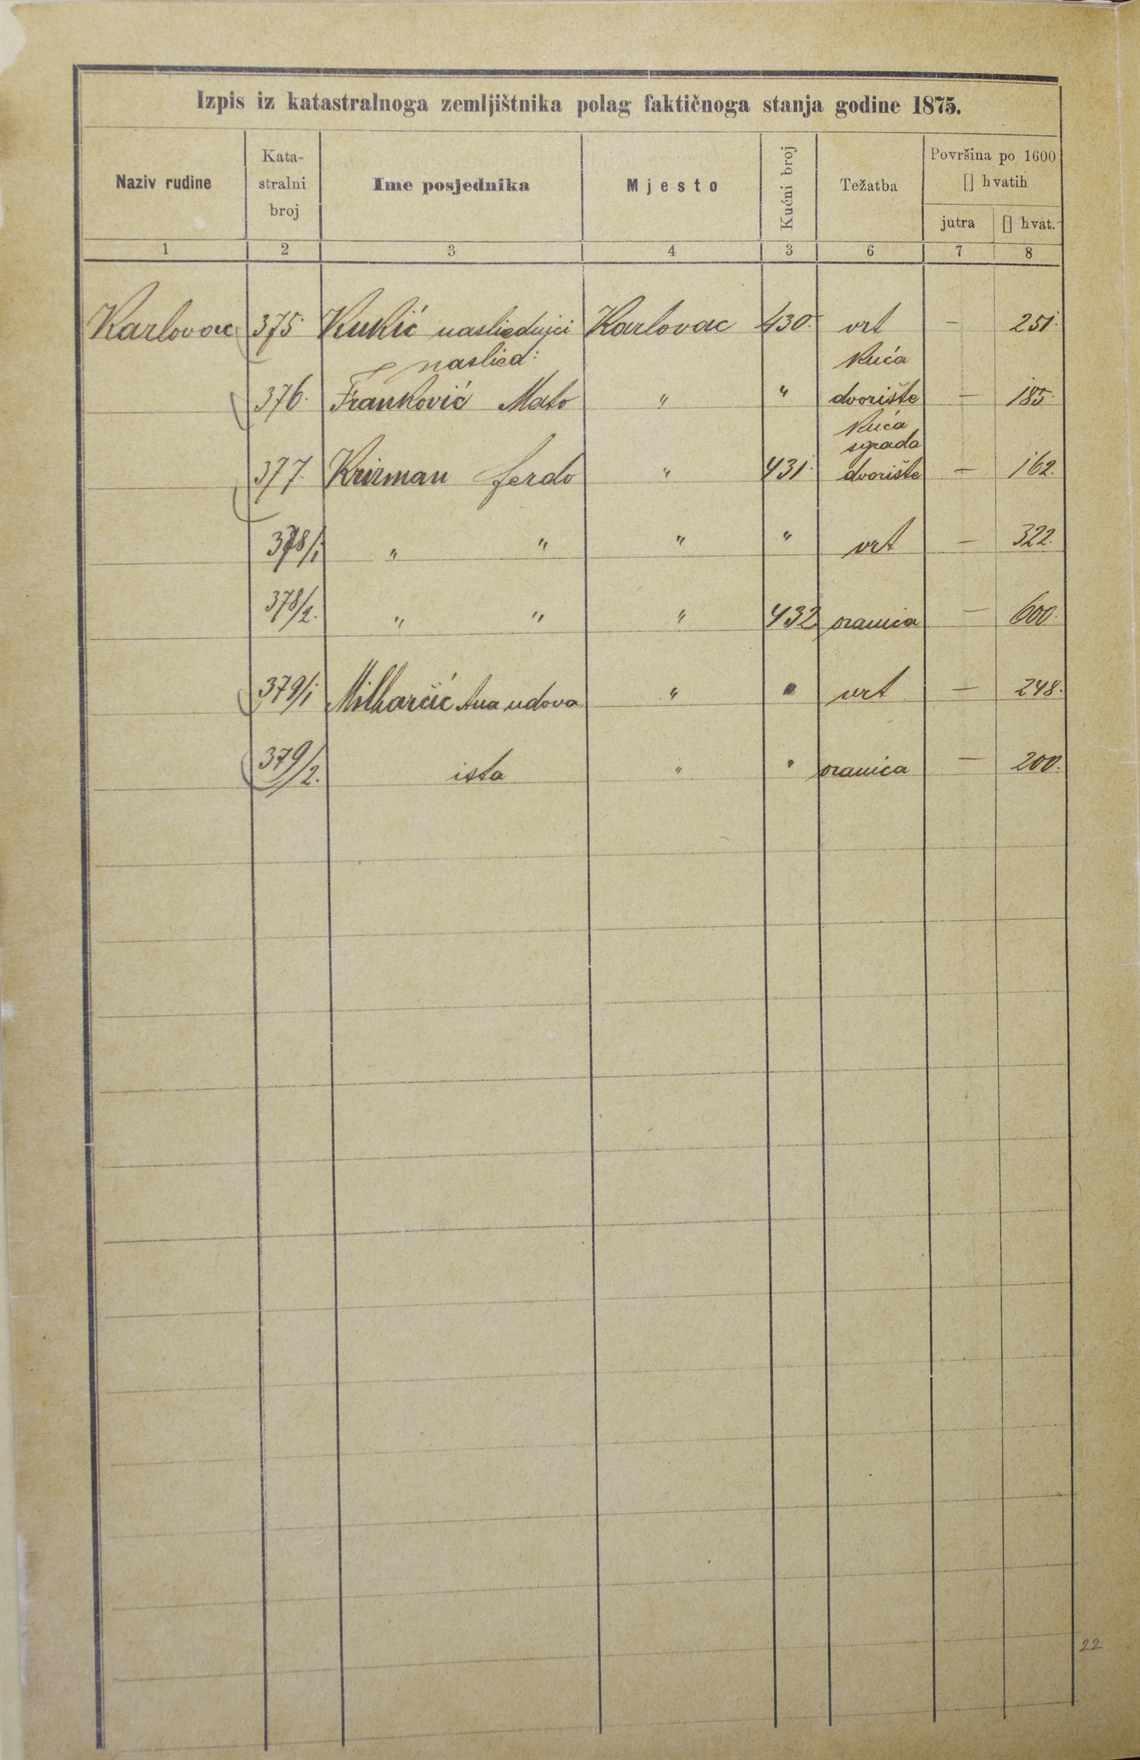 Izpis iz katastralnoga zemljištnika polag faktičnoga stanja godine 1875.
Naziv rudine
Kata-
stralni
broj
Ime posjednika
Mjesto
Kućni broj
Težatba
Površina po 1600
[] hvatih
jutra
[] hvat.
1 2 3 4 3 6 7 8
Karlovac 375 Kukić nasliedujci Karlovac 430. vrt — 251.
naslied: kuća
376. Franković Mato " " dvorište — 185.
kuća
sgrada
377. Krizman ferdo " 431. dvorište — 162.
378/1 " " " " vrt — 322.
378/2. " " " 432 oranica — 600.
379/1 Milharčić Ana udova " " vrt — 248.
379/2. ista " " oranica — 200.
22